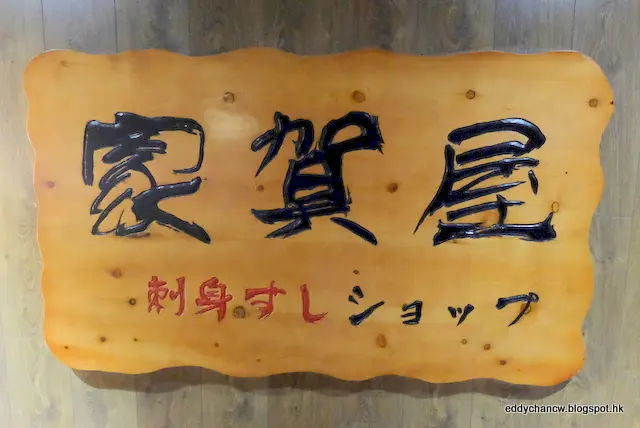 家賀屋
刺身すしショップ
eddychancw.blogspot.hk